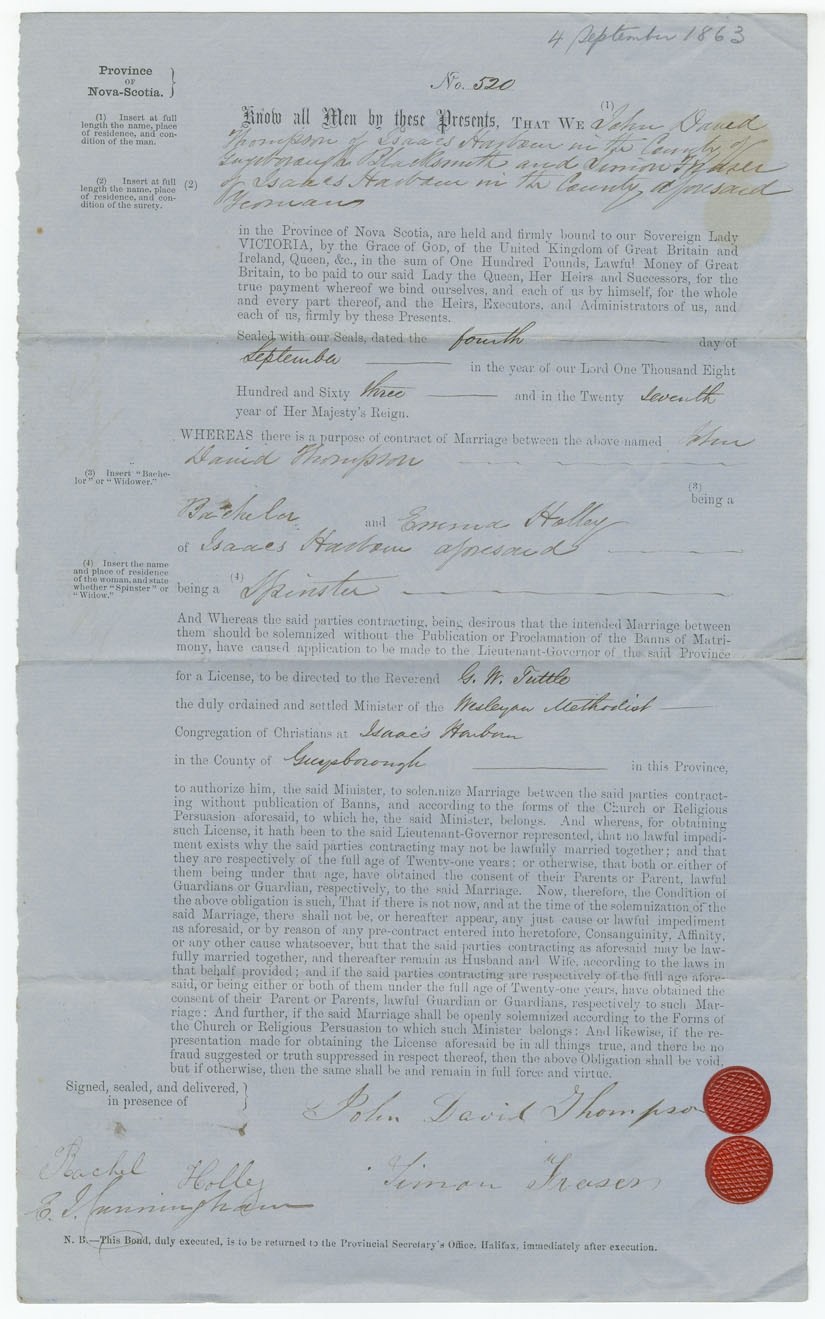 4 September 1863
Province
OF
Nova-Scotia.
No. 520
(1) Insert at full
length the name, place
of residence, and con-
dition of the man.
(1)
Know all Men by these Presents, THAT WE John David
Thompson of Isaacs Harbour in the County of
Guysborough Blacksmith and Simon Fraser
(2) Insert at full
length the name, place
of residence, and con-
dition of the surety.
(2) of Isaacs Harbour in the County aforesaid
Yeoman
in the Province of Nova Scotia, are held and firmly bound to our Sovereign Lady
VICTORIA, by the Grace of GOD, of the United Kingdom of Great Britain and
Ireland, Queen, &c., in the sum of One Hundred Pounds, Lawful Money of Great
Britain, to be paid to our said Lady the Queen, Her Heirs and Successors, for the
true payment whereof we bind ourselves, and each of us by himself, for the whole
and every part thereof, and the Heirs, Executors, and Administrators of us, and
each of us, firmly by these Presents.
Sealed with our Seals, dated the fourth day of
September in the year of our Lord One Thousand Eight
Hundred and Sixty three and in the Twenty seventh
year of Her Majesty's Reign.
WHEREAS there is a purpose of contract of Marriage between the above named John
David Thompson
(3) Insert "Bache-
lor" or "Widower."
(3)
being a
Bachelor and Emma Holley
of Isaacs Harbour aforesaid
(4) Insert the name
and place of residence
of the woman, and state
whether "Spinster" or
"Widow."
being a (4) Spinster
And Whereas the said parties contracting, being desirous that the intended Marriage between
them should be solemnized without the Publication or Proclamation of the Banns of Matri-
mony, have caused application to be made to the Lieutenant-Governor of the said Province
for a License, to be directed to the Reverend G. W. Tuttle
the duly ordained and settled Minister of the Wesleyan Methodist
Congregation of Christians at Isaac's Harbour
in the County of Guysborough in this Province,
to authorize him, the said Minister, to solemnize Marriage between the said parties contract-
ing without publication of Banns, and according to the forms of the Church or Religious
Persuasion aforesaid, to which he, the said Minister, belongs. And whereas, for obtaining
such License, it hath been to the said Lieutenant-Governor represented, that no lawful impedi-
ment exists why the said parties contracting may not be lawfully married together; and that
they are respectively of the full age of Twenty-one years; or otherwise, that both or either of
them being under that age, have obtained the consent of their Parents or Parent, lawful
Guardians or Guardian, respectively, to the said Marriage. Now, therefore, the Condition of
the above obligation is such, That if there is not now, and at the time of the solemnization of the
said Marriage, there shall not be, or hereafter appear, any just cause or lawful impediment
as aforesaid, or by reason of any pre-contract entered into heretofore, Consanguinity, Affinity,
or any other cause whatsoever, but that the said parties contracting as aforesaid may be law-
fully married together, and thereafter remain as Husband and Wife, according to the laws in
that behalf provided; and if the said parties contracting are respectively of the full age afore-
said, or being either or both of them under the full age of Twenty-one years, have obtained the
consent of their Parent or Parents, lawful Guardian or Guardians, respectively to such Mar-
riage: And further, if the said Marriage shall be openly solemnized according to the Forms of
the Church or Religious Persuasion to which such Minister belongs: And likewise, if the re-
presentation made for obtaining the License aforesaid be in all things true, and there be no
fraud suggested or truth suppressed in respect thereof, then the above Obligation shall be void,
but if otherwise, then the same shall be and remain in full force and virtue.
Signed, sealed, and delivered,
in presence of
John David Thompson
Rachel Holley
Simon Fraser
E. J. Cunningham
N. B.—This Bond, duly executed, is to be returned to the Provincial Secretary's Office, Halifax, immediately after execution.